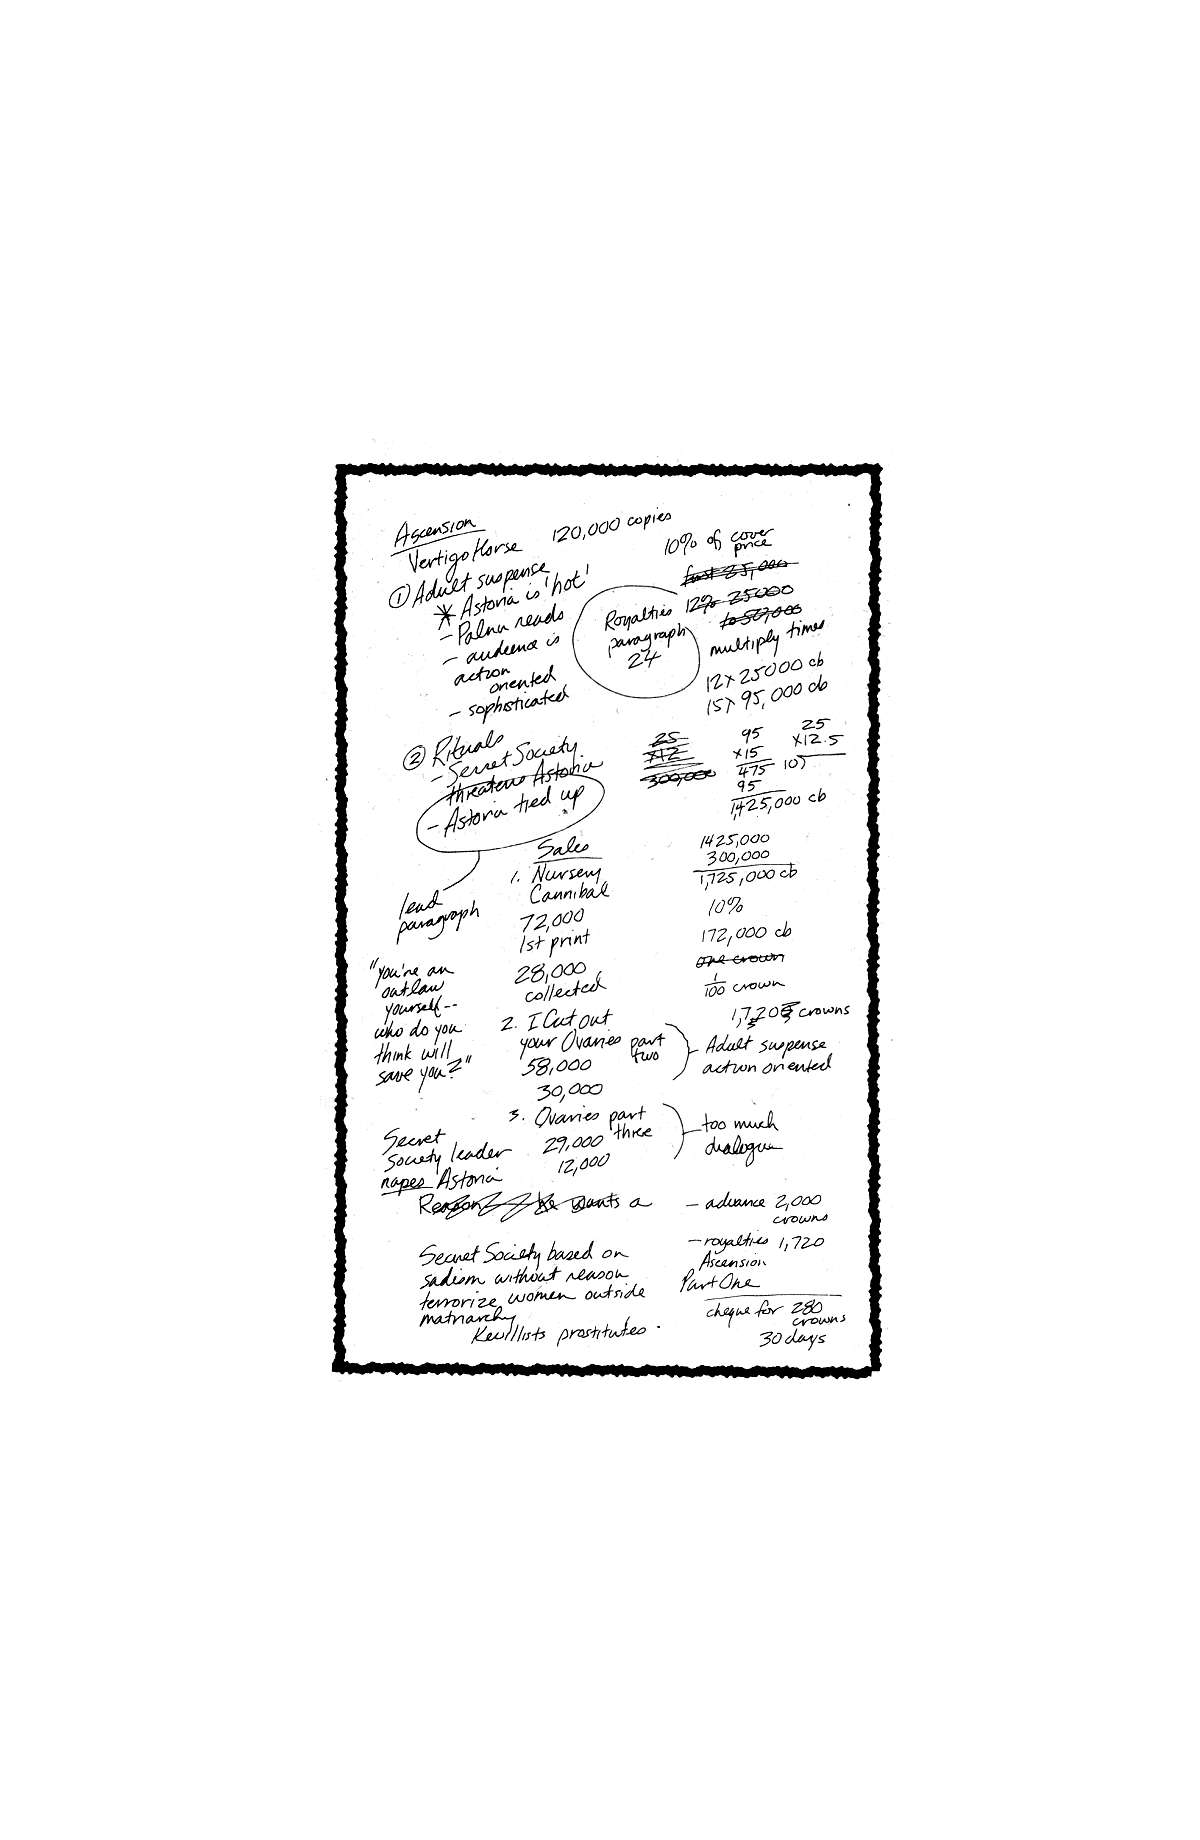 Ascension
Vertigo Horse
120,000 copies
10% of cover
price
① Adult suspense
* Astoria is 'hot'
- Palnu reads
- audience is
action
oriented
- sophisticated
first 25,000
Royalties
paragraph
24
12% 25000
to 50,000
multiply times
12 x 25000 cb
15 x 95,000 cb
② Rituals
- Secret Society
threatens Astoria
- Astoria tied up
lead
paragraph
25
x12
300,000
95
x15
475
95
1,425,000 cb
25
x12.5
10)
"you're an
outlaw
yourself--
who do you
think will
save you?"
Sales
1. Nursery
Cannibal
72,000
1st print
28,000
collected
2. I Cut out
your Ovaries part
two
58,000
30,000
3. Ovaries part
three
29,000
12,000
1425,000
300,000
1,725,000 cb
10%
172,000 cb
one crown
1/100 crown
1,720 crowns
Adult suspense
action oriented
too much
dialogue
Secret
Society leader
rapes Astoria
Reason he wants a
Secret Society based on
sadism without reason
terrorize women outside
matriarchy
Kevillists prostitutes.
- advance 2,000
crowns
- royalties 1,720
Ascension
Part One
cheque for 280
crowns
30 days